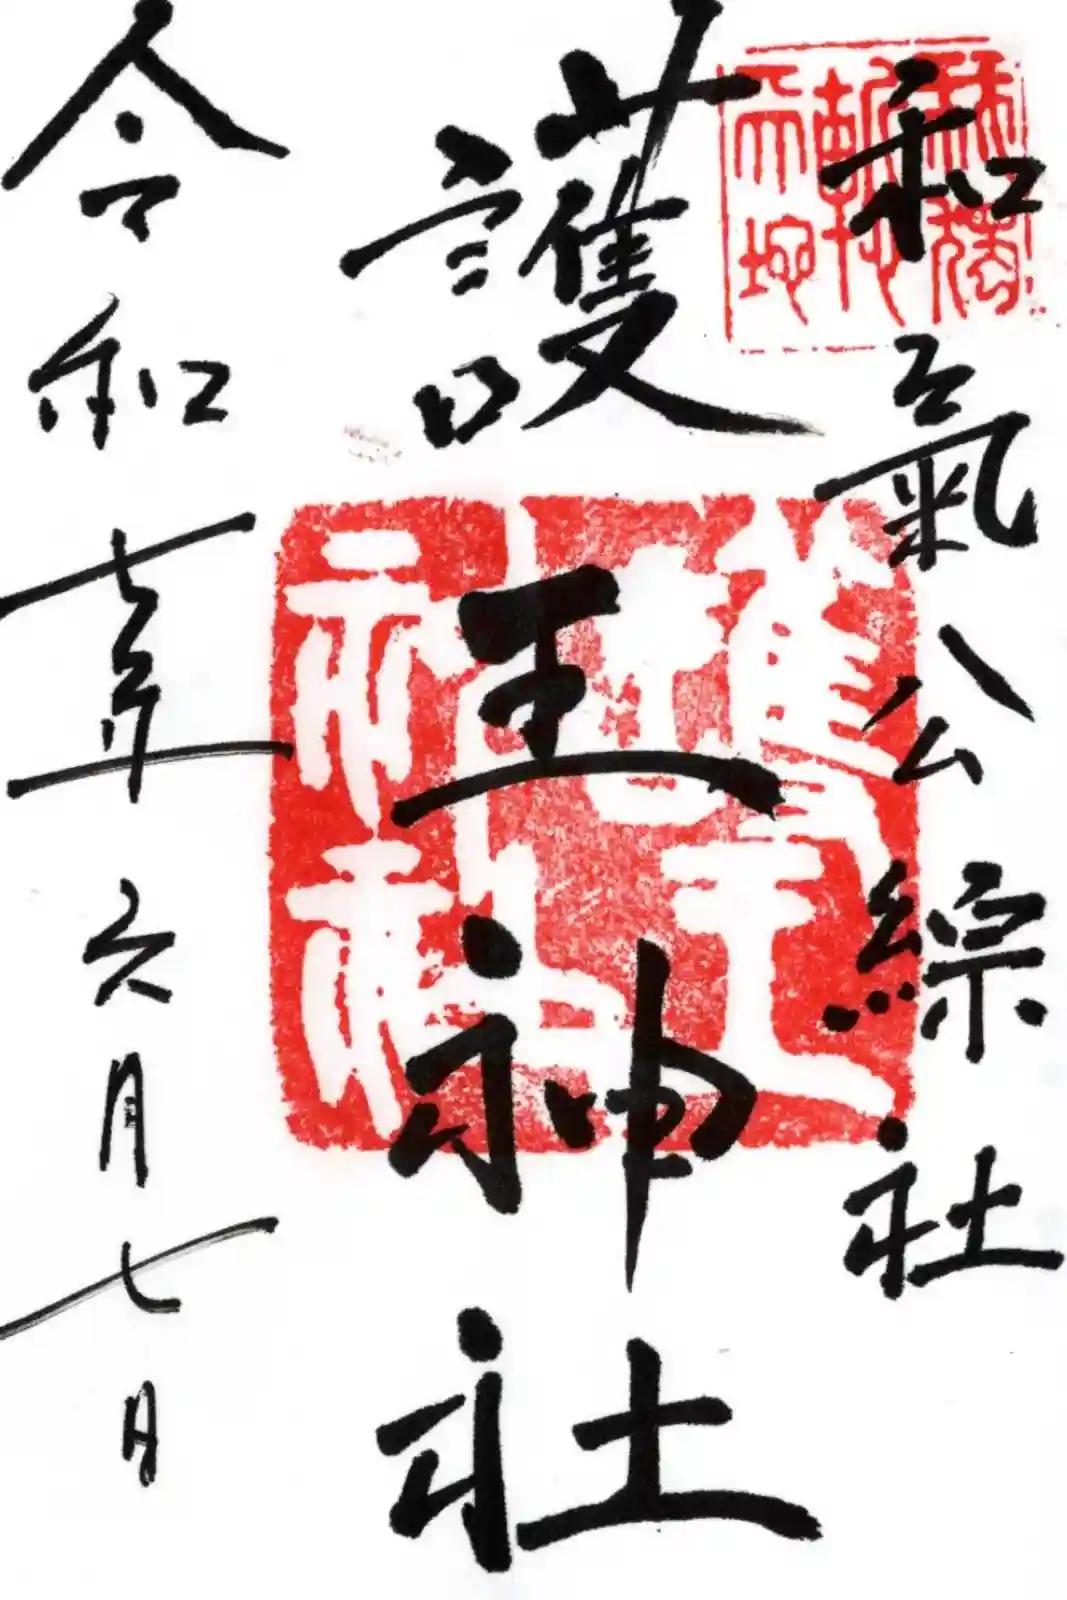 和氣公綜社
護王神社
令和七年六月七日
護王神社